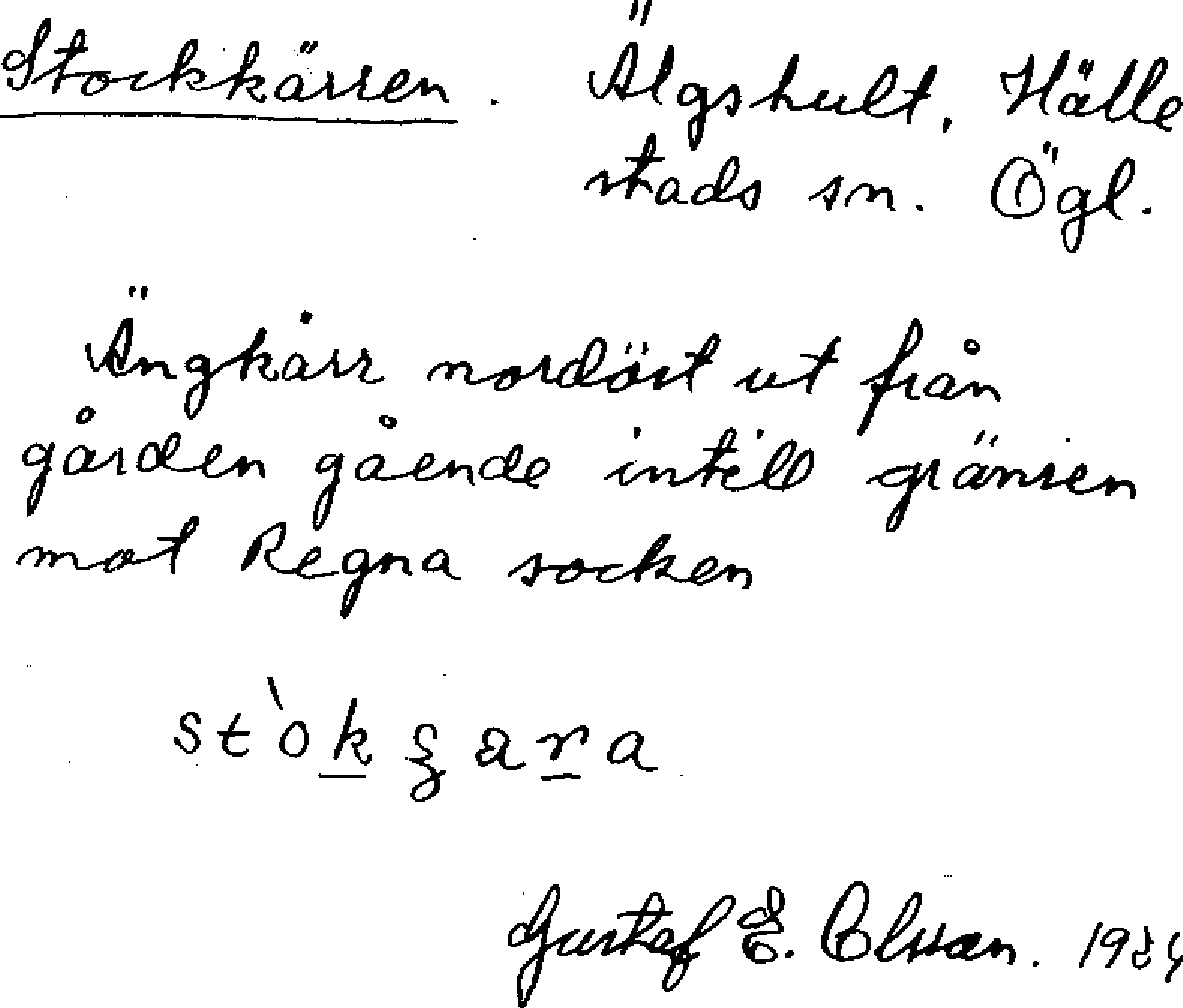 Stockkärren. Älgshult, Hälle
stads sn. Ögl.
Ängkärr nordöst ut från
gården gående intill gränsen
mot Regna socken
Gustaf E. Olsson.